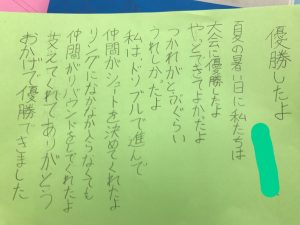 優勝したよ
夏の暑い日に私たちは
大会に優勝したよ
やってきてよかったよ
つかれがとぶぐらい
うれしかったよ
私はドリブルで進んで
仲間がシュートを決めてくれたよ
リングになかなかとどかなくても
仲間がリバウンドをしてくれたよ
支えてくれてありがとう
おかげで優勝できました